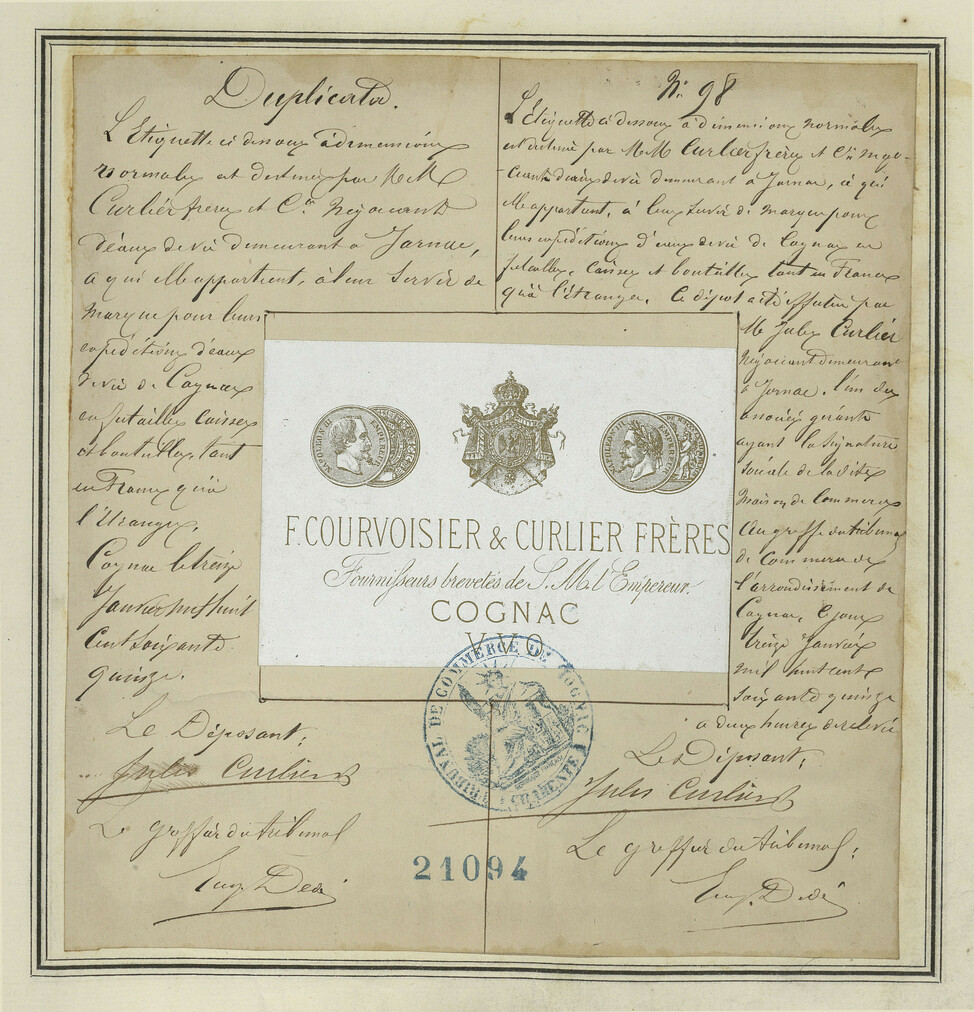 Duplicata.
L'Etiquette ci dessous à dimensions
normales est destinée par MM
Curlier frères et Cie Négociants
d'eaux de vie demeurant à Jarnac,
a qui elle appartient, à leur servir de
marque pour leurs
expéditions d'eaux
de vie de Cognac
en futailles caisses
et bouteilles, tant
en France qu'à
l'Etranger.
Cognac le treize
Janvier mil huit
cent soixante
quinze.
Le Déposant,
Jules Curlier
Le greffier du tribunal
No 98
L'Etiquette ci dessous à dimensions normales
est destinée par MM Curlier frères et Cie négo-
ciants d'eaux de vie demeurant à Jarnac, à qui
elle appartient, à leur servir de marque pour
leurs expéditions d'eaux de vie de Cognac en
futailles, caisses et bouteilles tant en France
qu'à l'étranger. Ce dépot a été effectué par
M Jules Curlier
Négociant demeurant
à Jarnac, l'un des
associés gérants
ayant la signature
sociale de la dite
maison de commerce
au greffe du tribunal
de Commerce de
l'arrondissement de
Cognac, ce jour
treize Janvier
mil huit cent
soixante quinze
a deux heures de relevée
Le Déposant,
Jules Curlier
Le greffier du tribunal,
NAPOLEON III EMPEREUR
NAPOLEON III EMPEREUR
F. COURVOISIER & CURLIER FRÈRES
Fournisseurs brevetés de S. M. l'Empereur.
COGNAC
V.V.O.
TRIBUNAL DE COMMERCE DE COGNAC
CHARENTE
21094